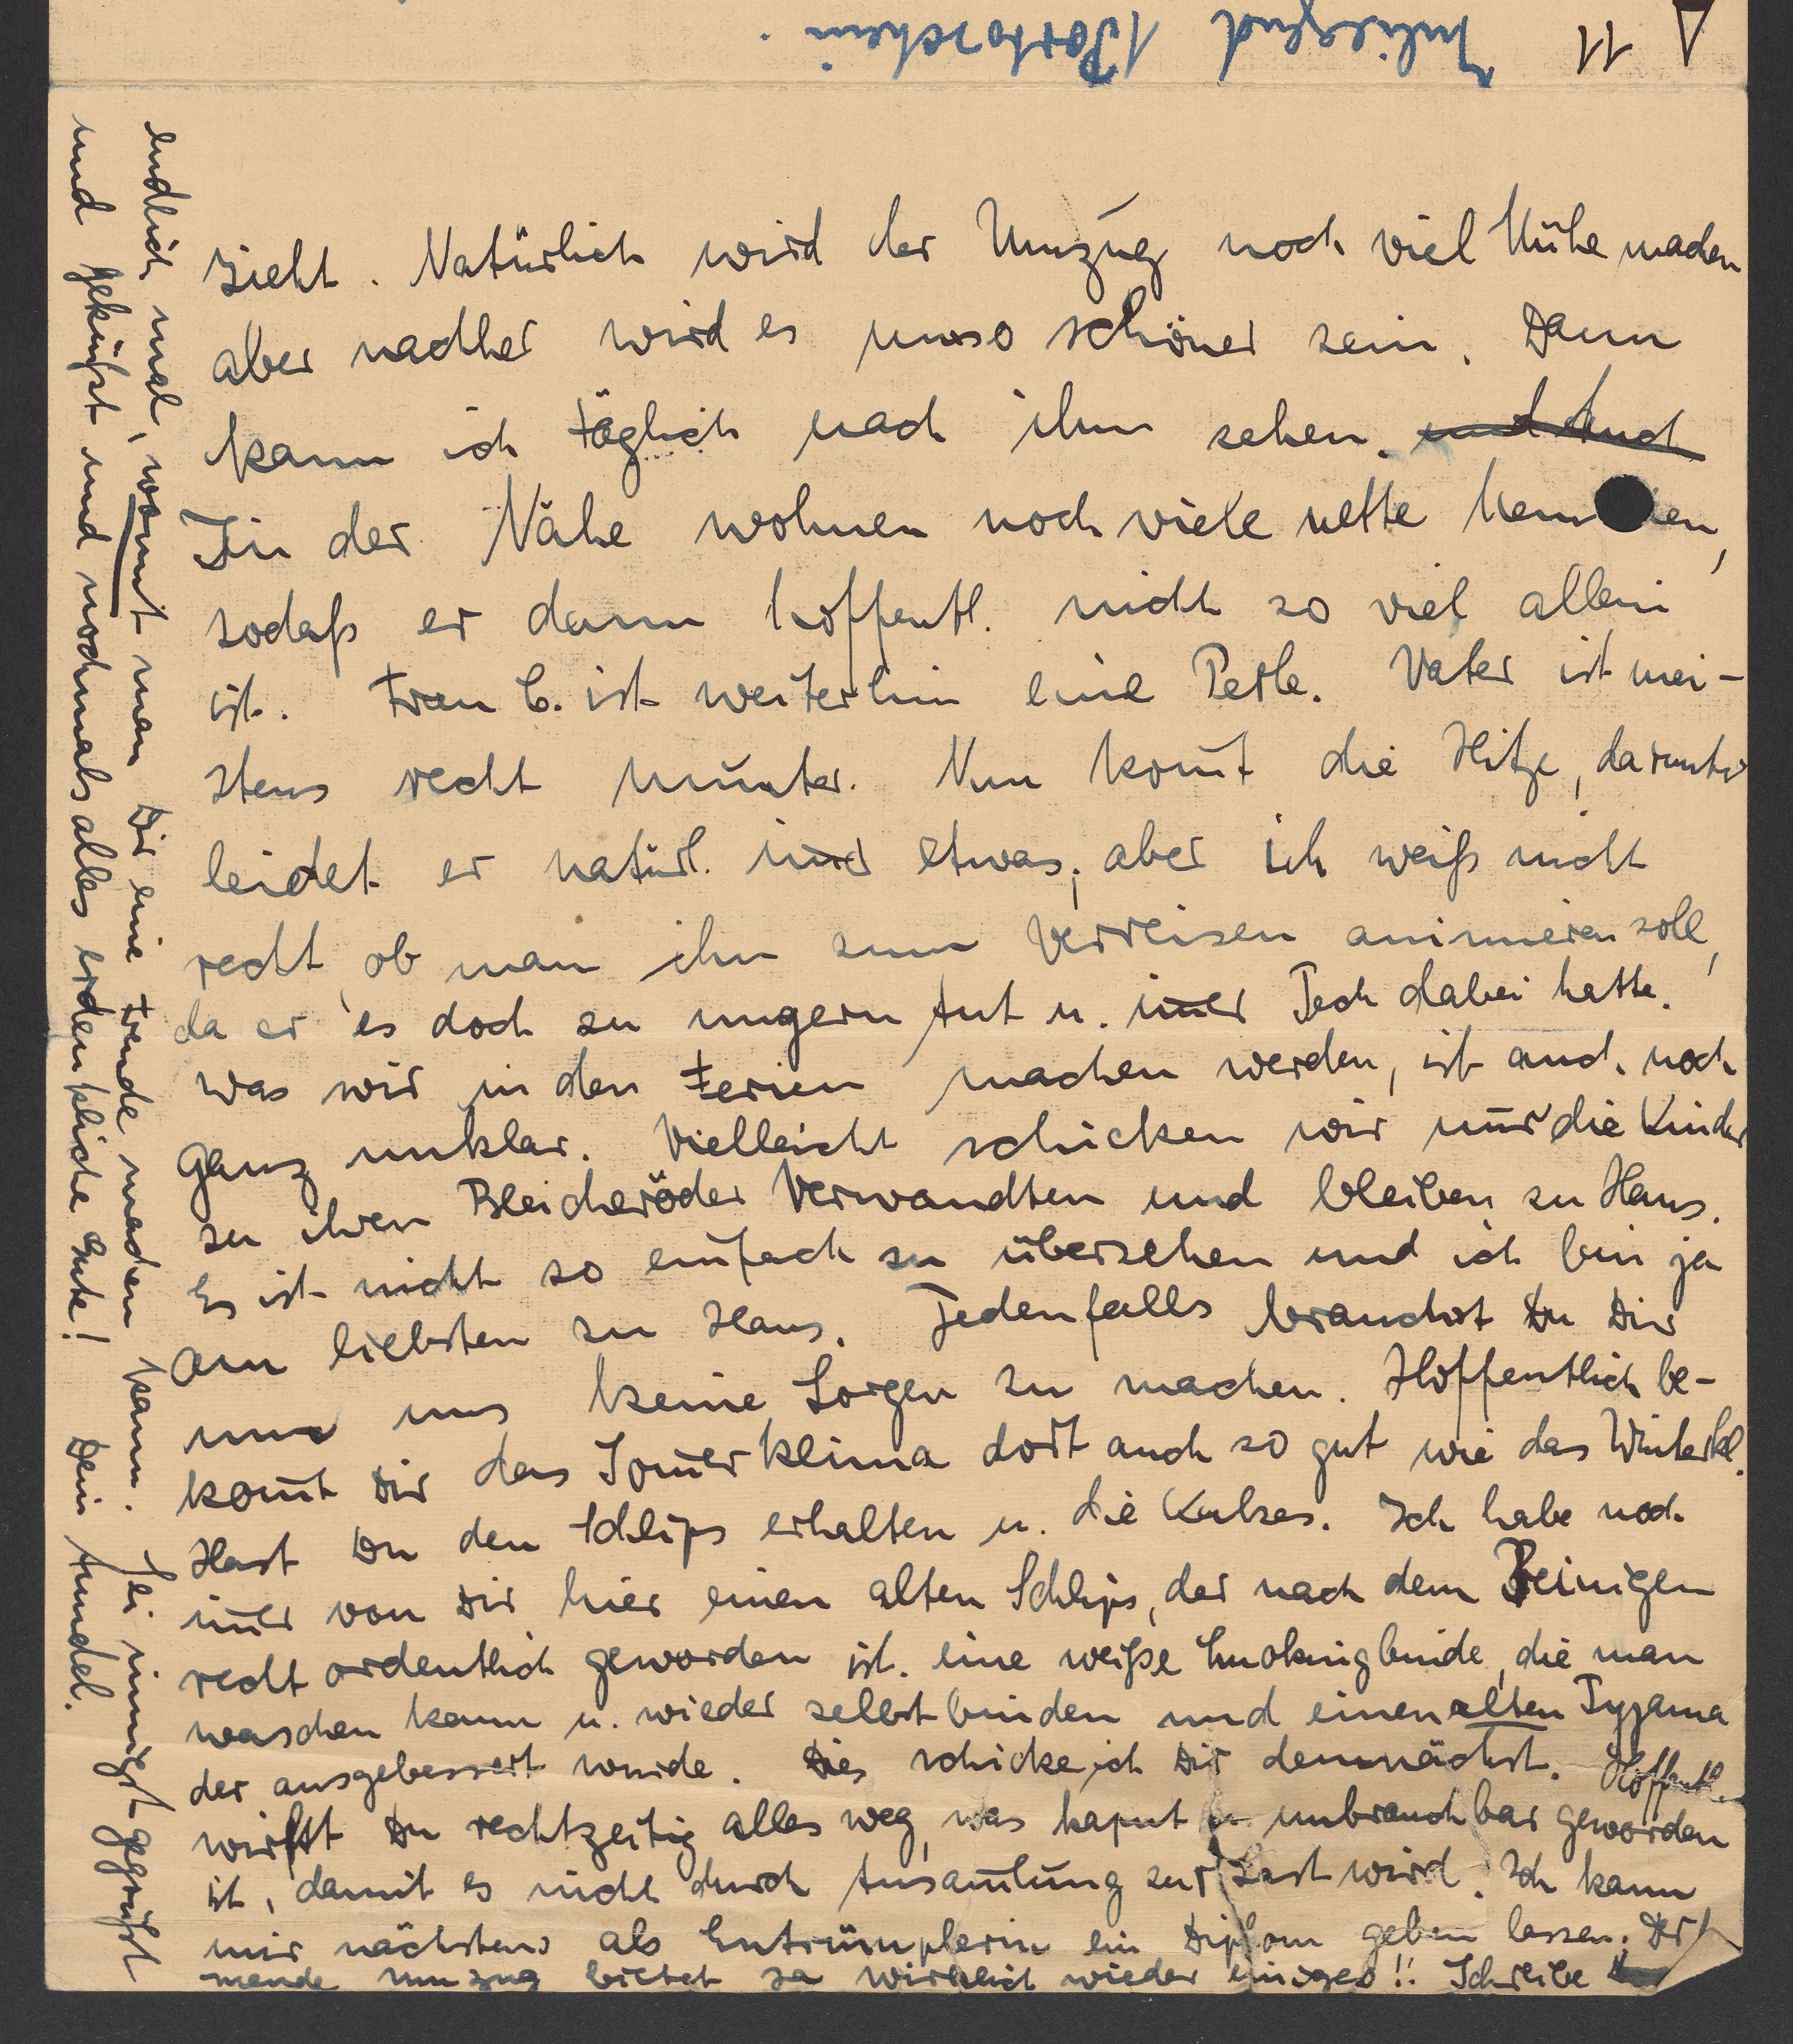 11 Inliegend 1 Portoschein.
zieht. Natürlich wird der Umzug noch viel Mühe machen
aber nachher wird es umso schöner sein. Dann
kann ich täglich nach ihm sehen. und Auch
In der Nähe wohnen noch viele nette Menschen,
sodaß er dann hoffentl. nicht so viel allein
ist. Frau C. ist weiterhin eine Perle. Vater ist mei-
stens recht munter. Nun kom̄t die Hitze, darunter
leidet er natürl. im̄er etwas, aber ich weiß nicht
recht, ob man ihn zum Verreisen animieren soll,
da er es doch zu ungern tut u. im̄er Pech dabei hatte.
Was wir in den Ferien machen werden, ist auch noch
ganz unklar. Vielleicht schicken wir nur die Kinder
zu ihren Bleicheröder Verwandten und bleiben zu Haus.
Es ist nicht so einfach zu übersehen und ich bin ja
am liebsten zu Haus. Jedenfalls brauchst Du Dir
um uns keine Sorgen zu machen. Hoffentlich be-
kom̄t Dir das Som̄erklima dort auch so gut wie das Winterkl.
Hast Du den Schlips erhalten u. die Kalzes. Ich habe noch
im̄er von Dir hier einen alten Schlips, der nach dem Reinigen
recht ordentlich geworden ist. eine weiße Smokingbinde, die man
waschen kann u. wieder selbst binden und einen alten Pyjama
der ausgebessert wurde. Dies schicke ich Dir demnächst. Hoffentl.
wirfst Du rechtzeitig alles weg, was kaput u. unbrauchbar geworden
ist, damit es nicht durch Ansam̄lung zur Last wird. Ich kann
mir nächstens als Entrümplerin ein Diplom geben lassen. Der
mende Umzug bietet ja wirklich wieder einiges!! Schreibe
endlich mal, wom̄it man Dir eine Freude machen kann. Sei innigst gegrüßt
und geküßt und nochmals alles erdenkliche Gute! Dein Fundel.